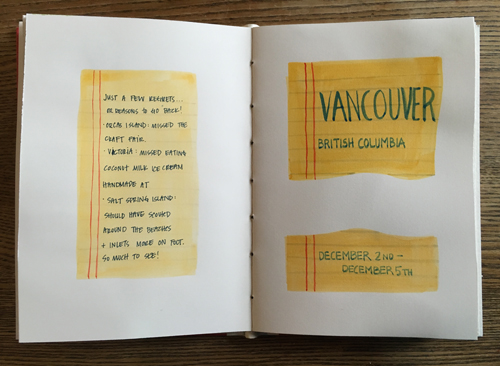 JUST A FEW REGRETS...
OR REASONS TO GO BACK!
· ORCAS ISLAND: MISSED THE
CRAFT FAIR.
· VICTORIA: MISSED EATING
COCONUT MILK ICE CREAM
HANDMADE AT
· SALT SPRING ISLAND:
SHOULD HAVE SCOUTED
AROUND THE BEACHES
+ INLETS MORE ON FOOT.
SO MUCH TO SEE!
VANCOUVER
BRITISH COLUMBIA
DECEMBER 2ND –
DECEMBER 5TH